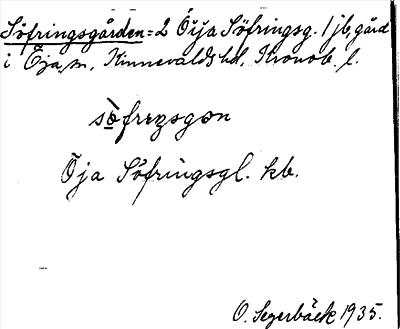 Söfringsgården = 2 Öija Söfringsg. 1 jb, gård
i Öja sn, Kinnevalds hd, Kronob. l.
Öja Söfringsgl. kb.
O. Segerbäck 1935.